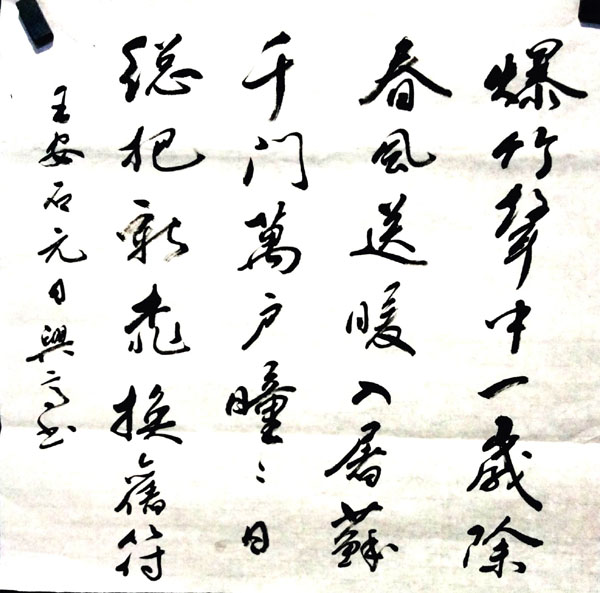 爆竹聲中一歲除
春風送暖入屠蘇
千門萬戶曈〻日
總把新桃換舊符
王安石元日興高书